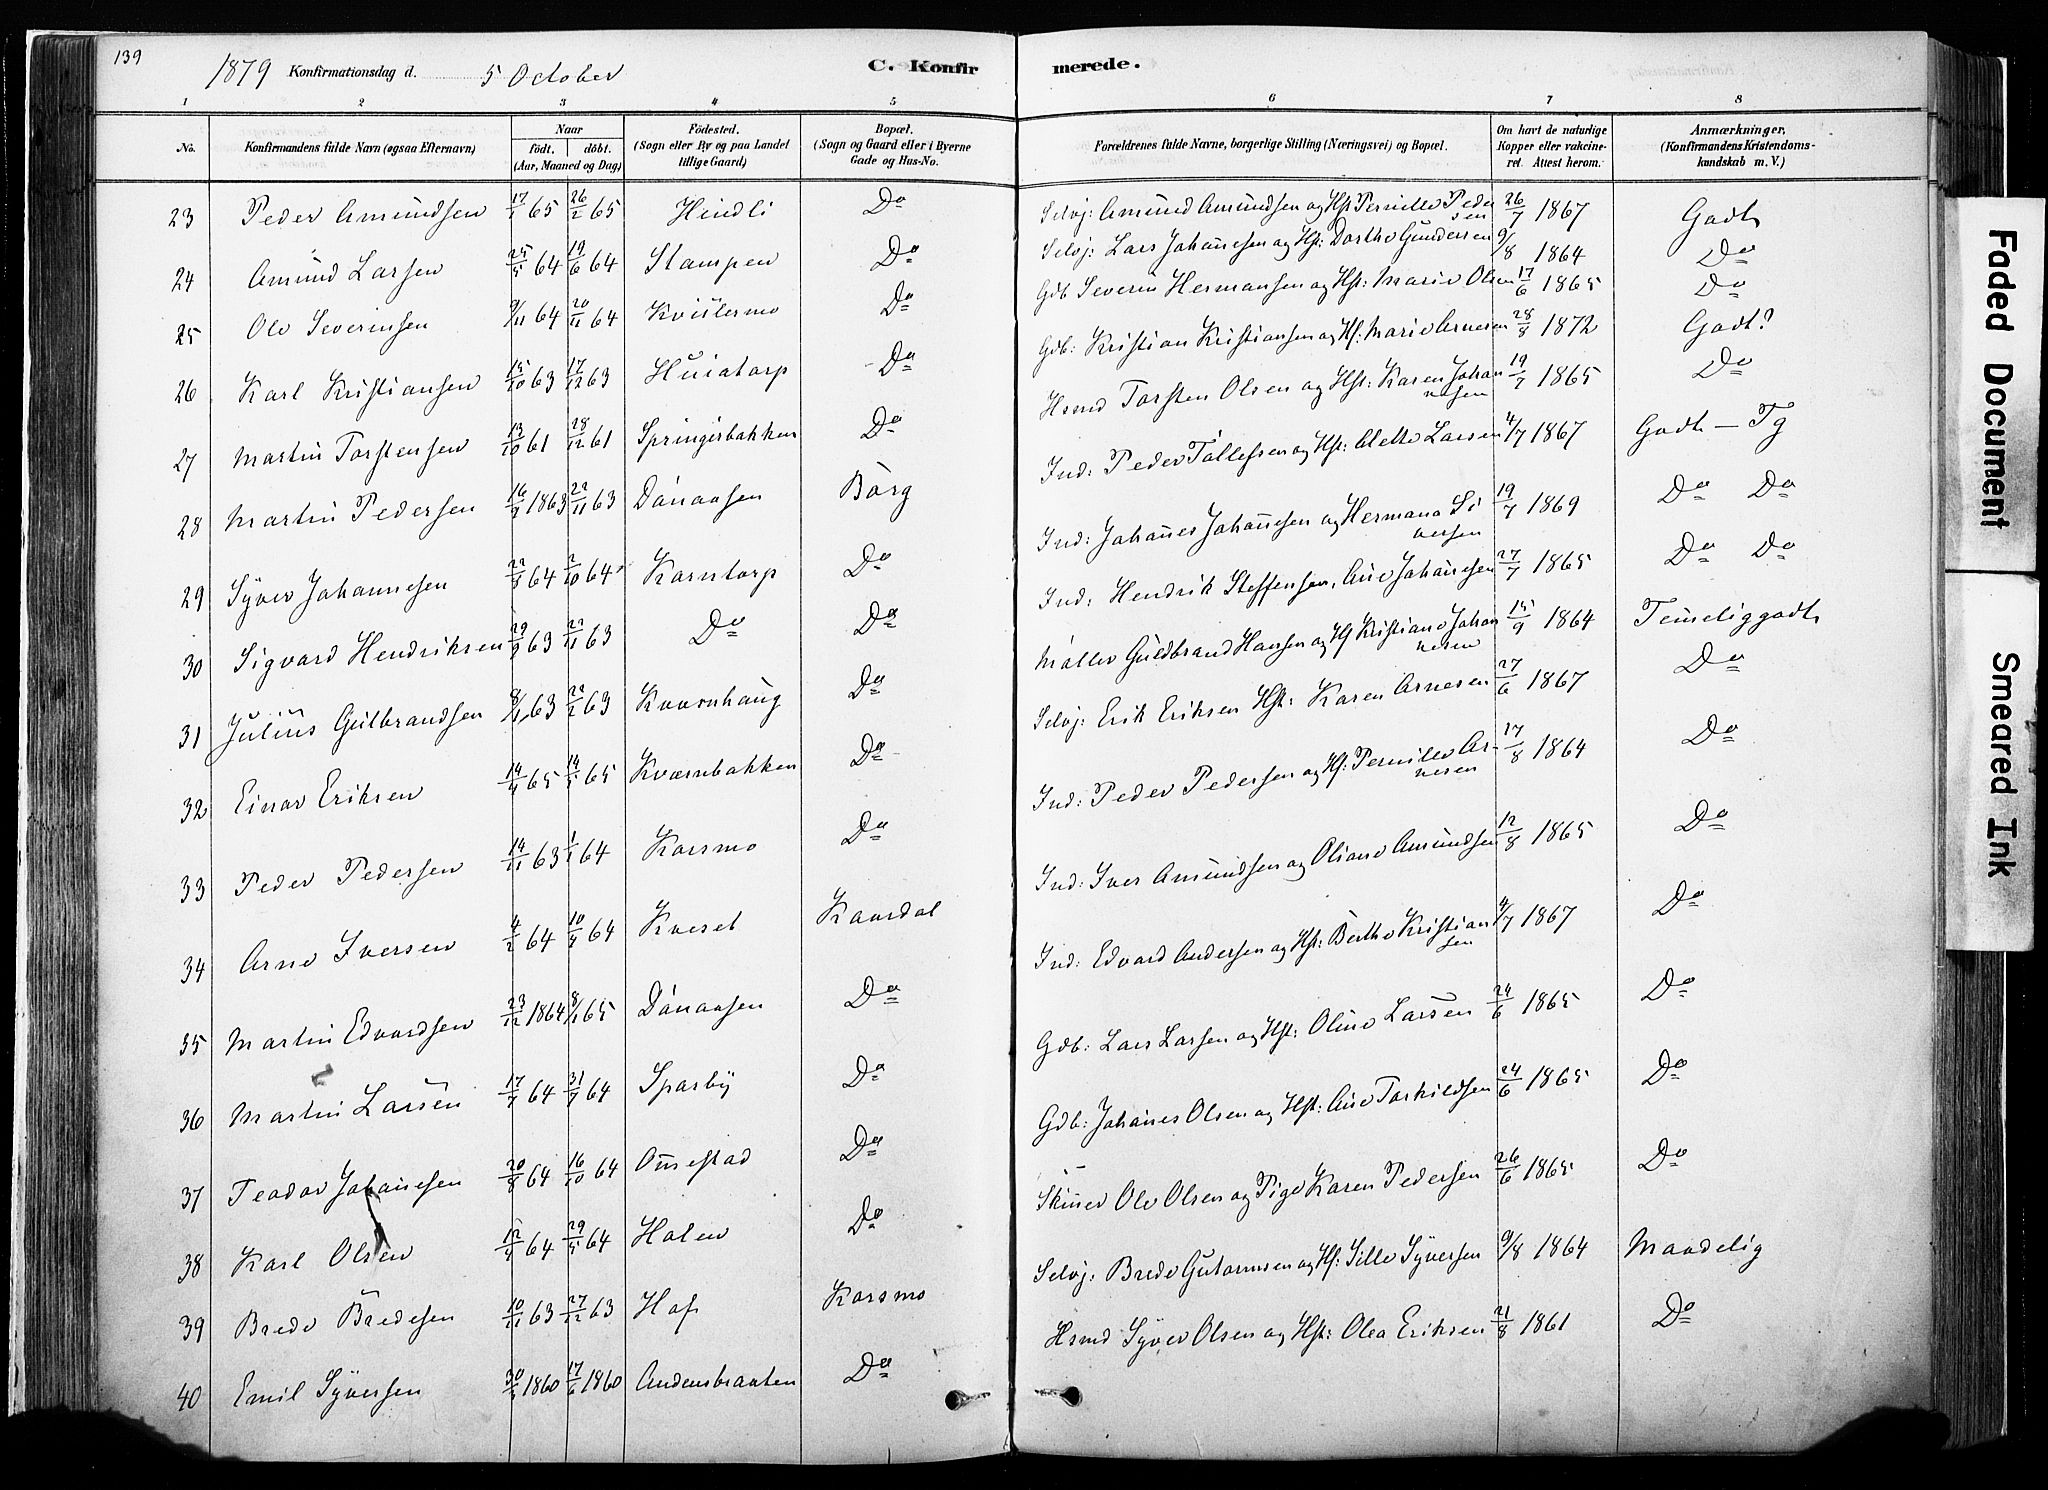 139
1879 Konfirmationsdag d. 5 October
C. Konfirmerede.
1 2 3 4 5 6 7 8
No. Konfirmandens fulde Navn (ogsaa Efternavn) Naar födt. döbt. (Aar, Maaned og Dag) Födested. (Sogn eller By og paa Landet tillige Gaard) Bopæl. (Sogn og Gaard eller i Byerne Gade og Hus-No. Forældrenes fulde Navne, borgerlige Stilling (Næringsvei) og Bopæl. Om havt de naturlige Kopper eller vakcineret. Attest herom. Anmærkninger, (Konfirmandens Kristendomskundskab m. V.)
23 Peder Amundsen 17/1 65 26/2 65 Hindli Do Selvj: Amund Amundsen og Hst Pernille Pedersen 26/7 1867 Godt
24 Amund Larsen 25/5 64 19/6 64 Stampen Do Selvj: Lars Johannesen og Hst: Dorthe Gundersen 9/8 1864 Do
25 Ole Severinsen 9/11 64 20/11 64 Do Gdb Severin Hermansen og Hst: Marie Olsen 17/6 1865 Do
26 Karl Kristiansen 15/10 63 17/12 63 Huiatorp Do Gdb: Kristian Kristiansen og Hst: Marie Arnesen 28/8 1872 Godt?
27 Martin Torstensen 13/10 61 28/12 61 Springerbakken Do Hsmd Torsten Olsen og Hst: Karen Johannesen 19/7 1865 Do
28 Martin Pedersen 16/9 1863 22/11 63 Dónaasen Börg Ind: Peder Tollefsen og Hst: Alette Larsen 4/7 1867 Godt — Tg
29 Syver Johannesen 22/8 64 2/10 64 Korntorp Do Ind: Johannes Johannesen og Hermana Siversen 19/7 1869 Do Do
30 Sigvard Hendriksen 29/9 63 22/11 63 Do Do Ind: Hendrik Steffensen, Ane Johannesen 27/7 1865 Do Do
31 Julius Gulbrandsen 8/1 63 22/2 63 Kvernhaug Do Møller Guldbrand Hansen og Hst Kristiane Johannesen 15/9 1864 Temeliggodt
32 Einar Eriksen 14/4 65 14/5 65 Kvernbakken Do Selvj: Erik Eriksen Hst: Karen Arnesen 27/6 1867 Do
33 Peder Pedersen 14/11 63 1/1 64 Korsmo Do Ind: Peder Pedersen og Hf: Pernille Arnesen 17/8 1864 Do
34 Arne Iversen 4/2 64 10/4 64 Kveset Kaardal Ind: Iver Amundsen og Oliane Amundsen 12/8 1865 Do
35 Martin Edvardsen 23/12 1864 8/1 65 Dónaasen Do Ind: Edvard Andersen og Hst: Berthe Kristiansen 4/7 1867 Do
36 Martin Larsen 17/7 64 31/7 64 Sparby Do Gdb: Lars Larsen og Hst: Oline Larsen 24/6 1865 Do
37 Teodor Johannesen 20/8 64 16/10 64 Ommestad Do Gdb: Johannes Olsen og Hst: Ane Torkildsen 24/6 1865 Do
38 Karl Olsen 12/4 64 29/5 64 Holen Do Skinner Ole Olsen og Pige Karen Pedersen 26/6 1865 Do
39 Brede Bredesen 10/11 63 27/12 63 Hof Korsmo Selvj: Brede Gutormsen og Hf: Sille Syversen 9/8 1864 Maadelig
40 Emil Syversen 1860 17/6 1860 Andensbraaten Do Hsmd Syver Olsen og Hst: Olea Eriksen 21/8 1861 Do
Faded Document
Smeared Ink